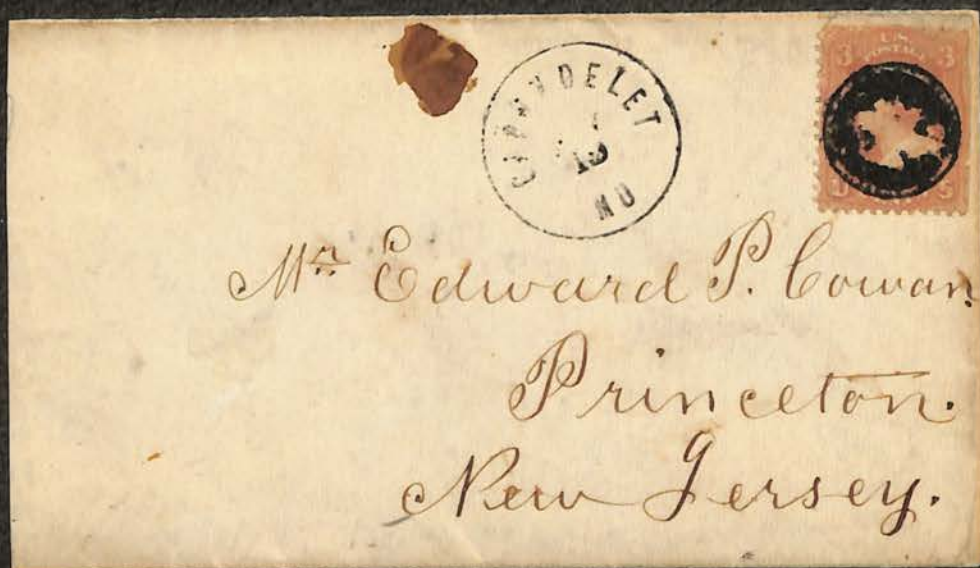 CARONDELET
19
MO
U.S.
POSTAGE
3 3
U S
Mr Edward P. Cowan
Princeton.
New Jersey.